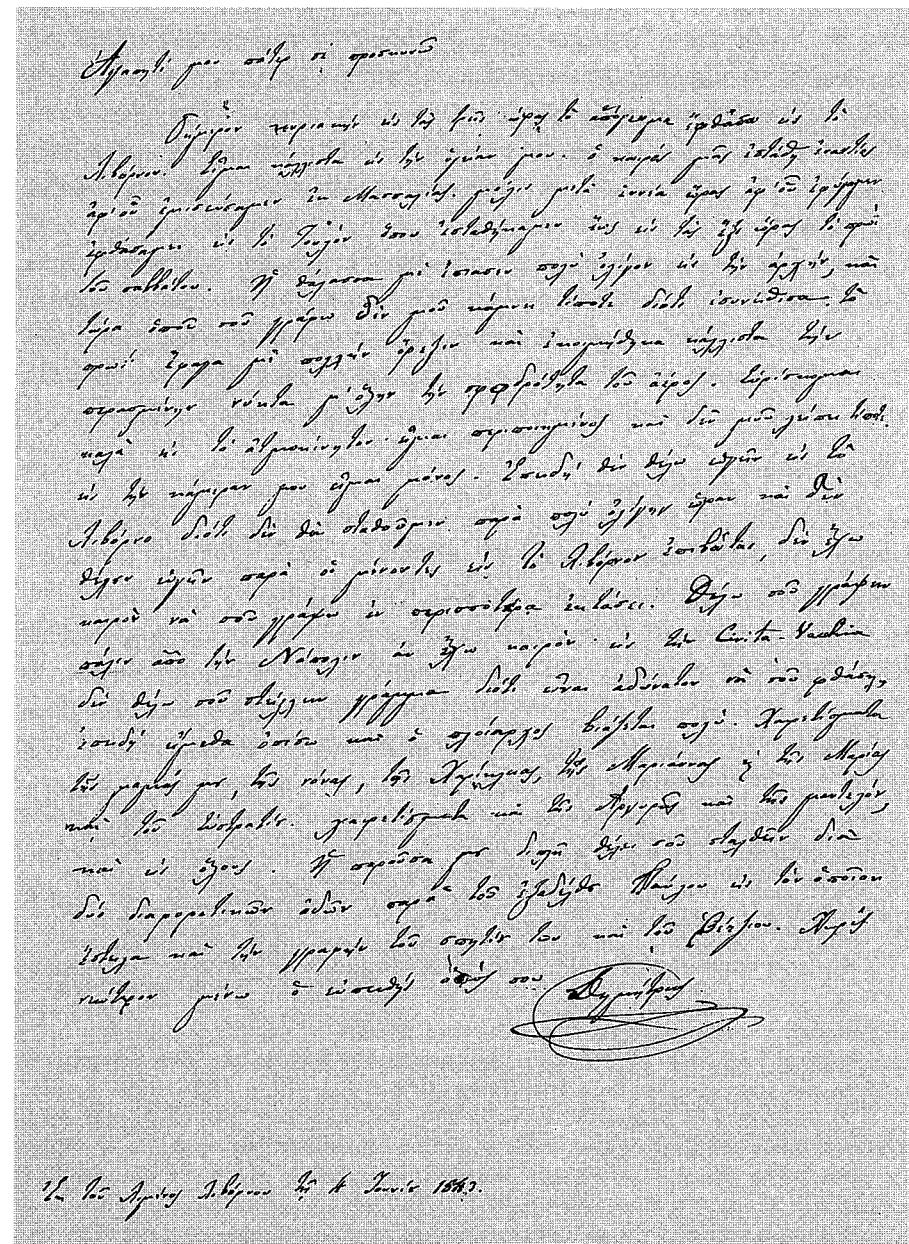 Ἀγαπητέ μου πάτερ σὲ προσκυνῶ
Σήμερον κυριακὴν εἰς τὰς τρεῖς ὥρας τὸ ἀπόγευμα ἐφθάσα εἰς τὸ
Λιβόρνον. Εἶμαι κάλλιστα εἰς τὴν ὑγείαν μου. ὁ καιρός μας ἐστάθη ἐναντίος
ἀφ' οὗ ἐμισεύσαμεν ἐκ Μασσαλίας. μόλις μετὰ ἐννέα ὥρας ἀφ' οὗ ἐφύγαμεν
ἐφθάσαμεν εἰς τὸ Τουλὸν ὅπου ἐσταθήκαμεν ἕως εἰς τὰς ἓξ ὥρας τὸ πρωῒ
τοῦ σαββάτου. Ἡ θάλασσα μὲ ἔπιασεν πολὺ ὀλίγον εἰς τὴν ἀρχὴν, καὶ
τώρα ὁποῦ σοῦ γράφω δὲν μοῦ κάμνει τίποτε διότι ἐσυνείθισα. τὸ
πρωῒ ἔφαγα μὲ πολλὴν ὄρεξιν καὶ ἐκοιμήθηκα κάλλιστα τὴν
περασμένην νύκτα μ' ὅλην τὴν σφοδρότητα τοῦ ἀέρος. Εὑρίσκομαι
καλὰ εἰς τὸ ἀτμοκίνητον· εἶμαι περιποιημένος καὶ δὲν μοῦ λείπει τίποτε.
εἰς τὴν κάμεραν μου εἶμαι μόνος. Ἐπειδὴ δὲν θέλω εὐγῆν εἰς τὸ
Λιβόρνο διότι δὲν θὰ σταθοῦμεν παρὰ πολὺ ὀλίγην ὥραν καὶ δὲν
θέλουν εὐγῆν παρὰ οἱ μένοντες εἰς τὸ Λιβόρνον ἐπιβάται, δὲν ἔχω
καιρὸν νὰ σοῦ γράψω ἐν περισσότερα ἐκτάσει. Θέλω σοῦ γράψειν
πάλιν ἀπὸ τὴν Νάπολιν ἂν ἔχω καιρὸν· εἰς τὴν Civita-Vechia
δὲν θέλω σοῦ στείλειν γράμμα διότι εἶναι ἀδύνατον νὰ σοῦ φθάση,
ἐπειδὴ εἴμεθα ὀπίσω καὶ ὁ πλοίαρχος βιάζεται πολύ. Χαιρετίσματα
τῆς μαμᾶς μου, τῆς νόνας, τῆς Χαρίκλειας, τῆς Μαριάννας καὶ τῆς Μαρίας
καὶ τοῦ Εὐστρατίου. χαιρετίσματα καὶ τῆς Ἀργυρῶς καὶ τῆς
καὶ εἰς ὅλους. Ἡ παροῦσα μου διπλῆ θέλει σοῦ σταλθῆν διὰ
δύο διαφορετικῶν ὁδῶν παρὰ τοῦ ἐξαδέλφου Παύλου εἰς τὸν ὁποῖον
ἔστειλα καὶ τὴν γραφὴν τοῦ σπητίου του καὶ τοῦ Χωρὶς
νεώτερον μένω ὁ εὐπειθής υἱός σου Δημήτριος
Ἐκ τοῦ Λιμένος Λιβόρνου τῇ 4 Ἰουνίου